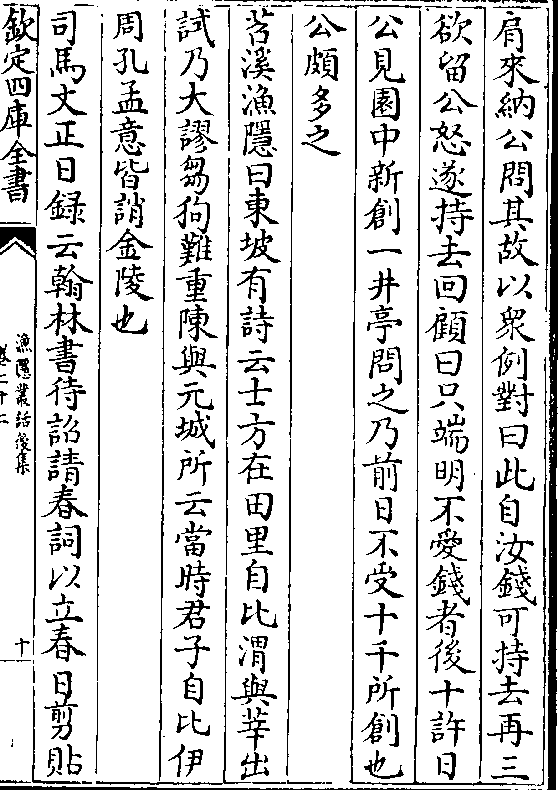 肩來納公問其故以衆例對曰此自汝錢可持去再三
欲留公怒遂持去回顧曰只端明不愛錢者後十許日
公見園中新創一井亭問之乃前日不受十千所創也
公頗多之
苕溪漁隱曰東坡有詩云士方在田里自比渭與莘出
試乃大謬芻狗難重陳與元城所云當時君子自比伊
周孔孟意皆誚金陵也
司馬文正日録云翰林書待詔請春詞以立春日剪貼
欽定四庫全書
漁隱叢話後集
卷二十二
十